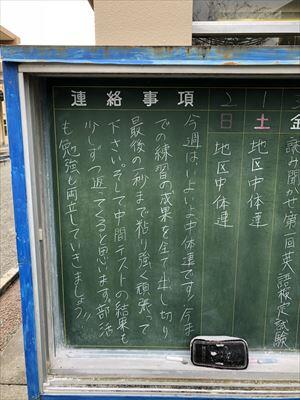 金
読み聞かせ 第一回英語検定試験
1
土
地区中体連
2
日
地区中体連
連絡事項
今週は、いよいよ中体連です!!今ま
での練習の成果を全て出し切り
最後の一秒まで粘り強く頑張って
下さい。そして中間テストの結果も
少しずつ返ってくると思います。部活
も勉強も両立していきましょう!!